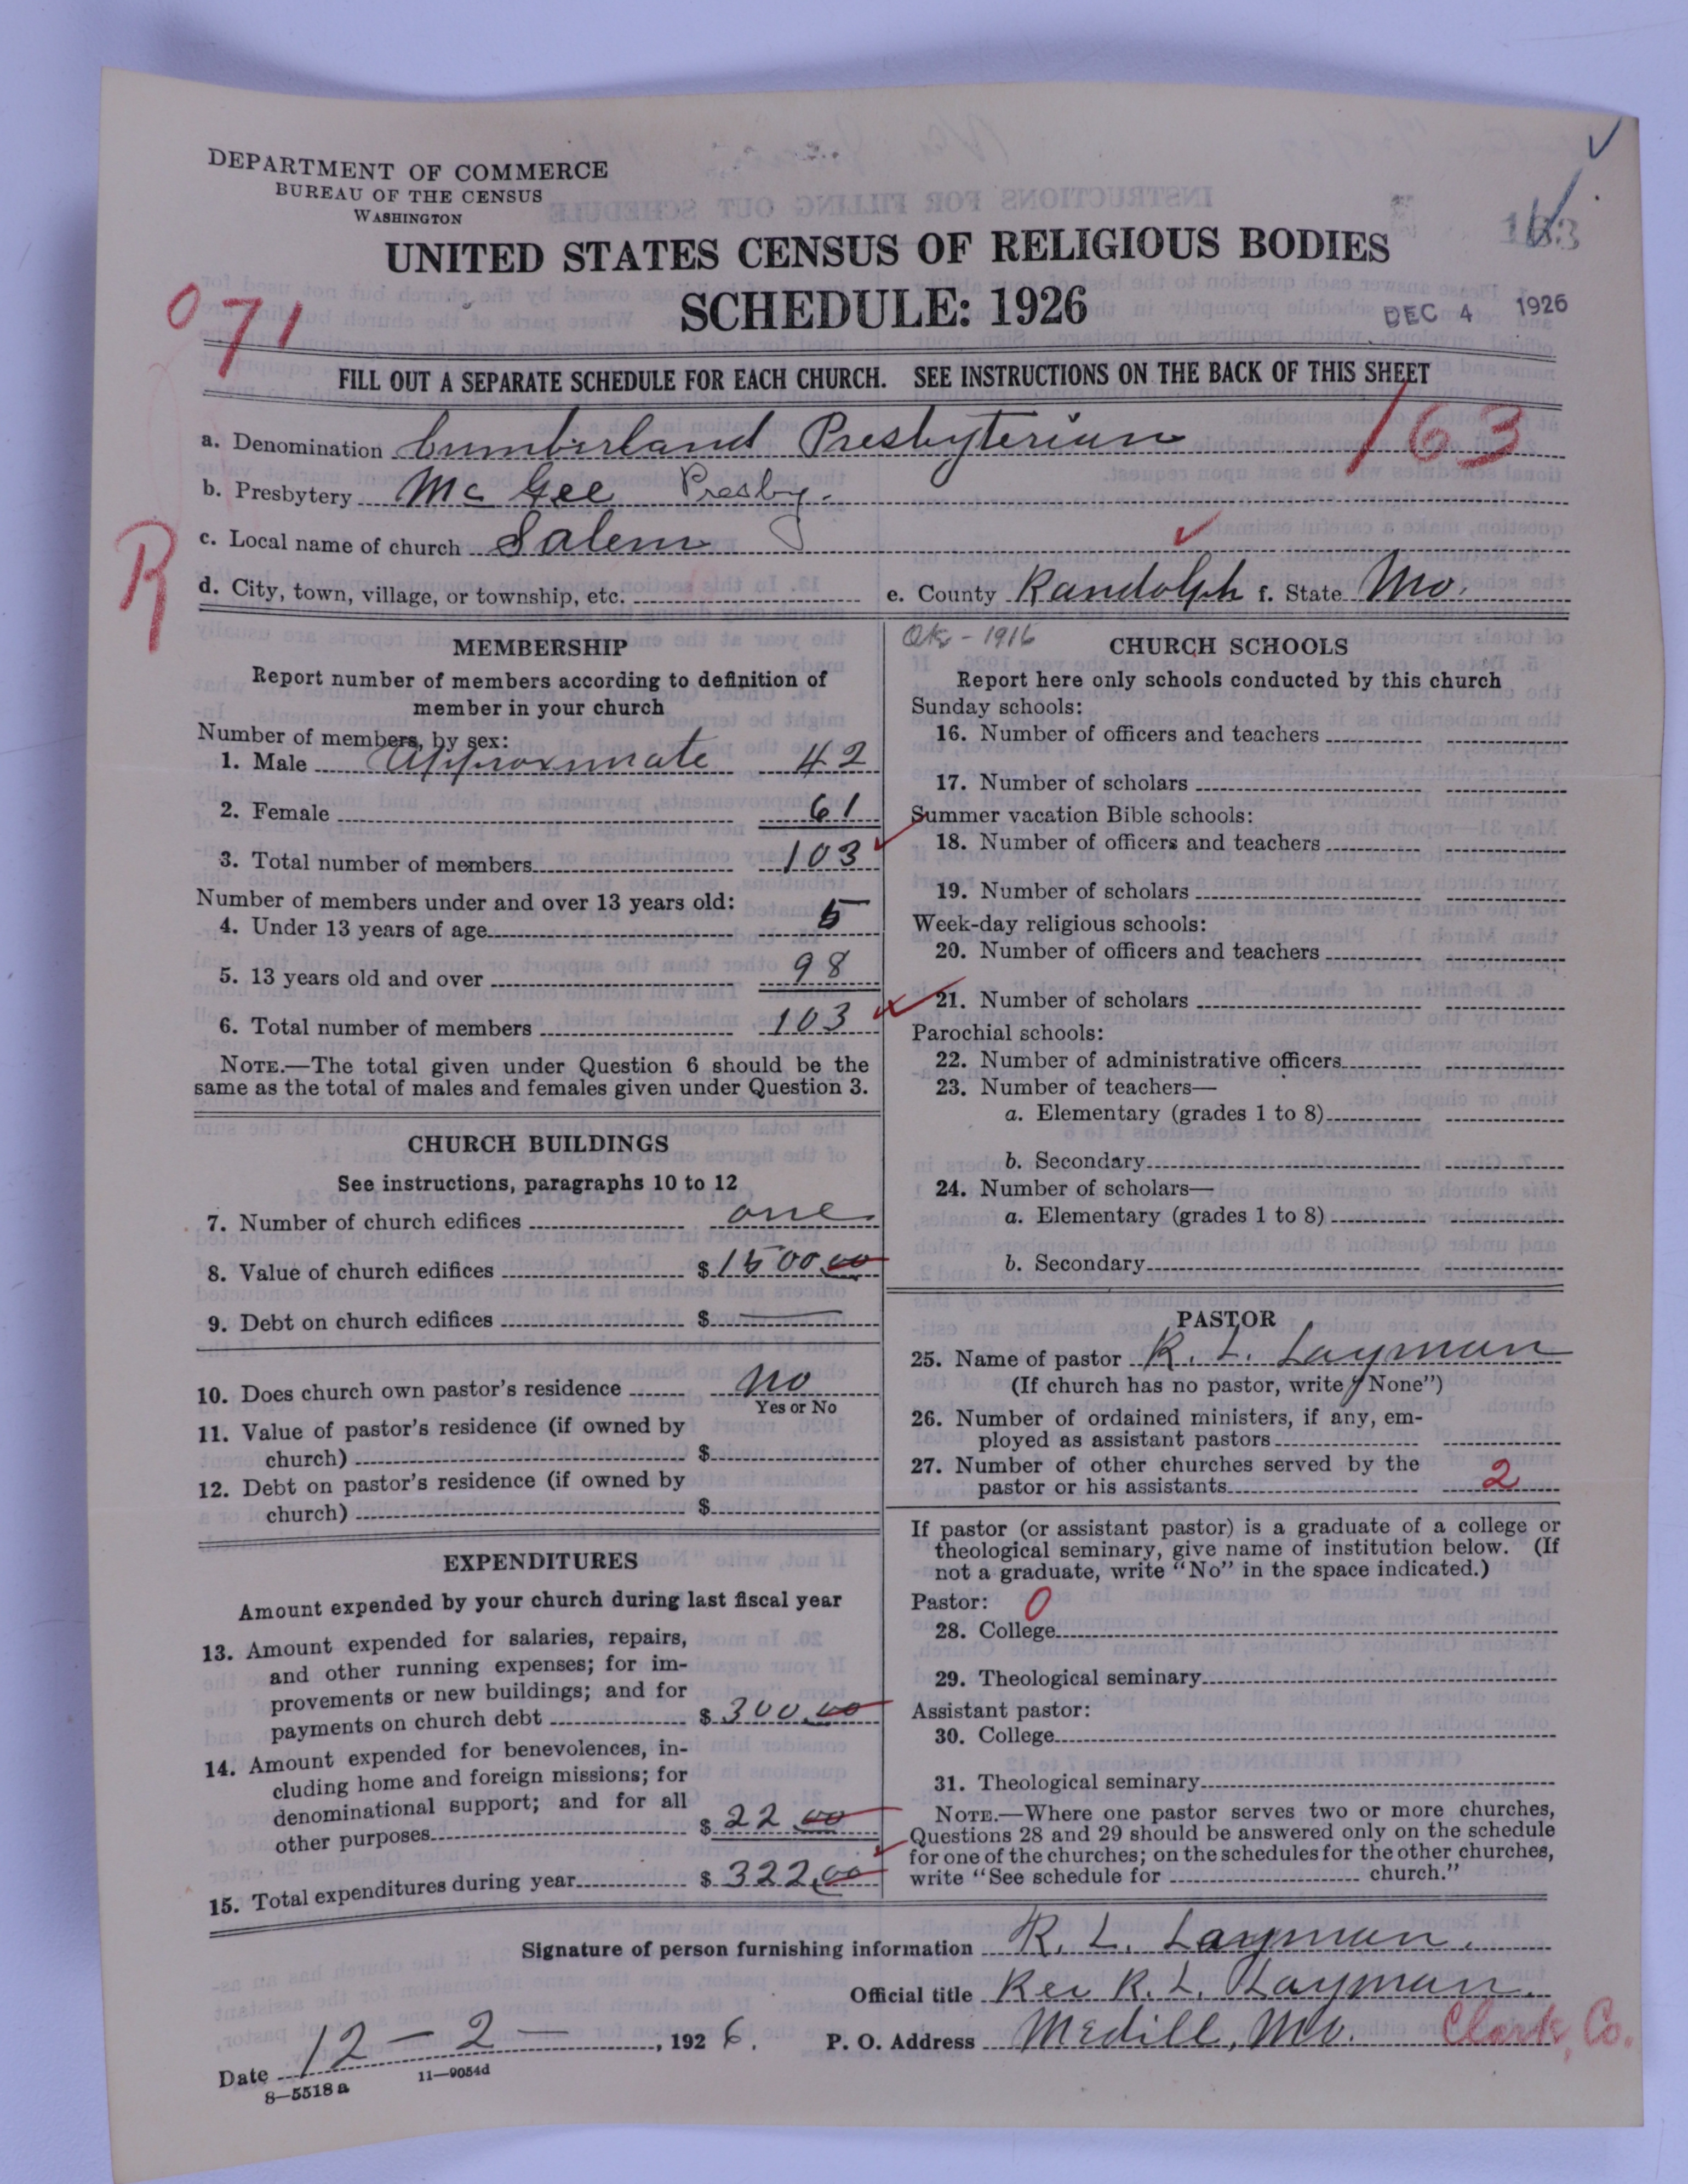 DEPARTMENT OF COMMERCE
BUREAU OF THE CENSUS
WASHINGTON
UNITED STATES CENSUS OF RELIGIOUS BODIES
SCHEDULE: 1926
DEC 4 1926
071
FILL OUT A SEPARATE SCHEDULE FOR EACH CHURCH. SEE INSTRUCTIONS ON THE BACK OF THIS SHEET
163
a. Denomination Cumberland Presbyterian
b. Presbytery Mc Gee Presby.
c. Local name of church Salem
R
d. City, town, village, or township, etc.
e. County Randolph f. State Mo.
MEMBERSHIP
Report number of members according to definition of
member in your church
Number of members, by sex:
1. Male Approximate 42
2. Female 61
3. Total number of members 103
Number of members under and over 13 years old:
4. Under 13 years of age 5
5. 13 years old and over 98
6. Total number of members 103
NOTE.—The total given under Question 6 should be the
same as the total of males and females given under Question 3.
CHURCH BUILDINGS
See instructions, paragraphs 10 to 12
7. Number of church edifices one
8. Value of church edifices $1500.00
9. Debt on church edifices $
10. Does church own pastor's residence No
Yes or No
11. Value of pastor's residence (if owned by
church) $
12. Debt on pastor's residence (if owned by
church) $
EXPENDITURES
Amount expended by your church during last fiscal year
13. Amount expended for salaries, repairs,
and other running expenses; for im-
provements or new buildings; and for
payments on church debt $ 300.00
14. Amount expended for benevolences, in-
cluding home and foreign missions; for
denominational support; and for all
other purposes $ 22.00
15. Total expenditures during year $ 322.00
- 1916
CHURCH SCHOOLS
Report here only schools conducted by this church
Sunday schools:
16. Number of officers and teachers
17. Number of scholars
Summer vacation Bible schools:
18. Number of officers and teachers
19. Number of scholars
Week-day religious schools:
20. Number of officers and teachers
21. Number of scholars
Parochial schools:
22. Number of administrative officers
23. Number of teachers—
a. Elementary (grades 1 to 8)
b. Secondary
24. Number of scholars—
a. Elementary (grades 1 to 8)
b. Secondary
PASTOR
25. Name of pastor R. L. Layman
(If church has no pastor, write "None")
26. Number of ordained ministers, if any, em-
ployed as assistant pastors
27. Number of other churches served by the
pastor or his assistants 2
If pastor (or assistant pastor) is a graduate of a college or
theological seminary, give name of institution below. (If
not a graduate, write "No" in the space indicated.)
Pastor: 0
28. College
29. Theological seminary
Assistant pastor:
30. College
31. Theological seminary
NOTE.—Where one pastor serves two or more churches,
Questions 28 and 29 should be answered only on the schedule
for one of the churches; on the schedules for the other churches,
write "See schedule for church."
Signature of person furnishing information R. L. Layman.
Official title Rev R. L. Layman.
Date 12 - 2 - , 1926. P. O. Address Medill, Mo. Clark, Co.
8—5518a 11—9054d